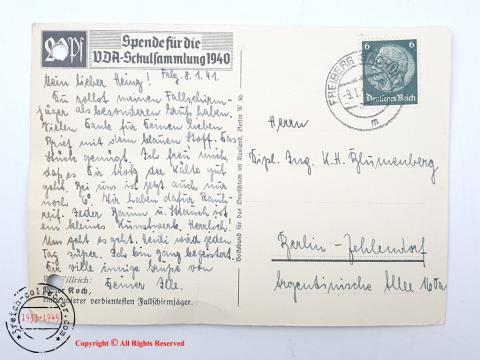 20 Pf
Spende für die
VDA-Schulsammlung 1940
Frbg. 8.1.41.
Mein lieber Heinz!
Du sollst meinen Fallschirm-
jäger als besonderen Gruß haben.
Vielen Dank für Deinen lieben
Brief mit dem blauen Stoff. Das
genügt. Ich freu mich,
daß es Dir trotz der Kälte gut
geht. Bei uns ist jetzt auch nur
noch Wir haben dafür Rauh-
reif. Jeder Baum u. Strauch ist
ein kleines Kunstwerk. Herrlich!
Uns geht es gut. Heidi wird jeden
Tag süßer. Ich bin ganz begeistert.
Dir viele innige Grüße von
Deiner Ilse.
Willrich:
Major Koch,
einer unserer verdientesten Fallschirmjäger.
Volksbund für das Deutschtum im Ausland, Berlin W 30
FREIBERG
6
6
Deutsches Reich
Herrn
Dipl. Ing. K.H. Blumenberg
Berlin-Zehlendorf
Argentinische Allee
3reich-collector.com
1933-1945
Copyright © All Rights Reserved